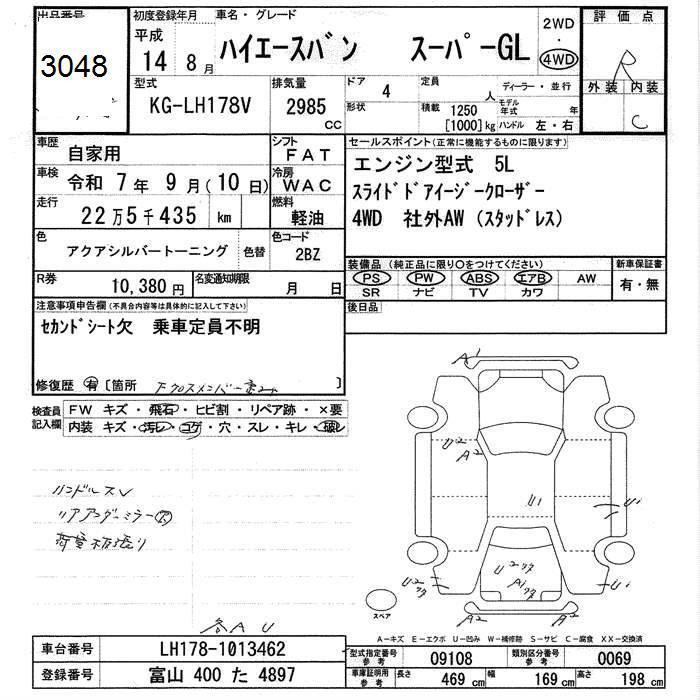 出品番号
3048
初度登録年月
平成
14年 8月
車名・グレード
ハイエースバン スーパーGL
2WD
・
4WD
評価点
R
外装 内装
C
型式
KG-LH178V
排気量
2985
cc
ドア
4
定員
人
形状
積載
1250
[1000]kg
ディーラー・並行
モデル年式 年
ハンドル 左・右
車歴
自家用
シフト
FAT
車検
令和 7年 9月(10日)
冷房
WAC
走行
22万5千435 km
燃料
軽油
色
アクアシルバートーニング
色替
色コード
2BZ
R券
10,380円
名変通知期限
月 日
セールスポイント(正常に機能するものに限ります)
エンジン型式 5L
スライドドアイージークローザー
4WD 社外AW(スタッドレス)
装備品(純正品に限り〇をつけてください)
PS PW ABS エアB AW
SR ナビ TV カワ
新車保証書
有・無
後日品
注意事項申告欄(不具合内容等は具体的に記入して下さい)
セカンドシート欠 乗車定員不明
修復歴 有 [箇所 ]
検査員
記入欄
FW キズ・飛石・ヒビ割・リペア跡・×要
内装 キズ・汚レ・コゲ・穴・スレ・キレ・破レ
ハンドルスレ
リアアンダーミラー欠
A1
U2
A2
U1
U1
A2
A2
スペア
各AU
A-キズ E-エクボ U-凹み W-補修跡 S-サビ C-腐食 XX-交換済
車台番号
LH178-1013462
登録番号
富山 400 た 4897
型式指定番号
参考
09108
類別区分番号
参考
0069
車庫証明用
参考
長さ
469 cm
幅
169 cm
高さ
198 cm